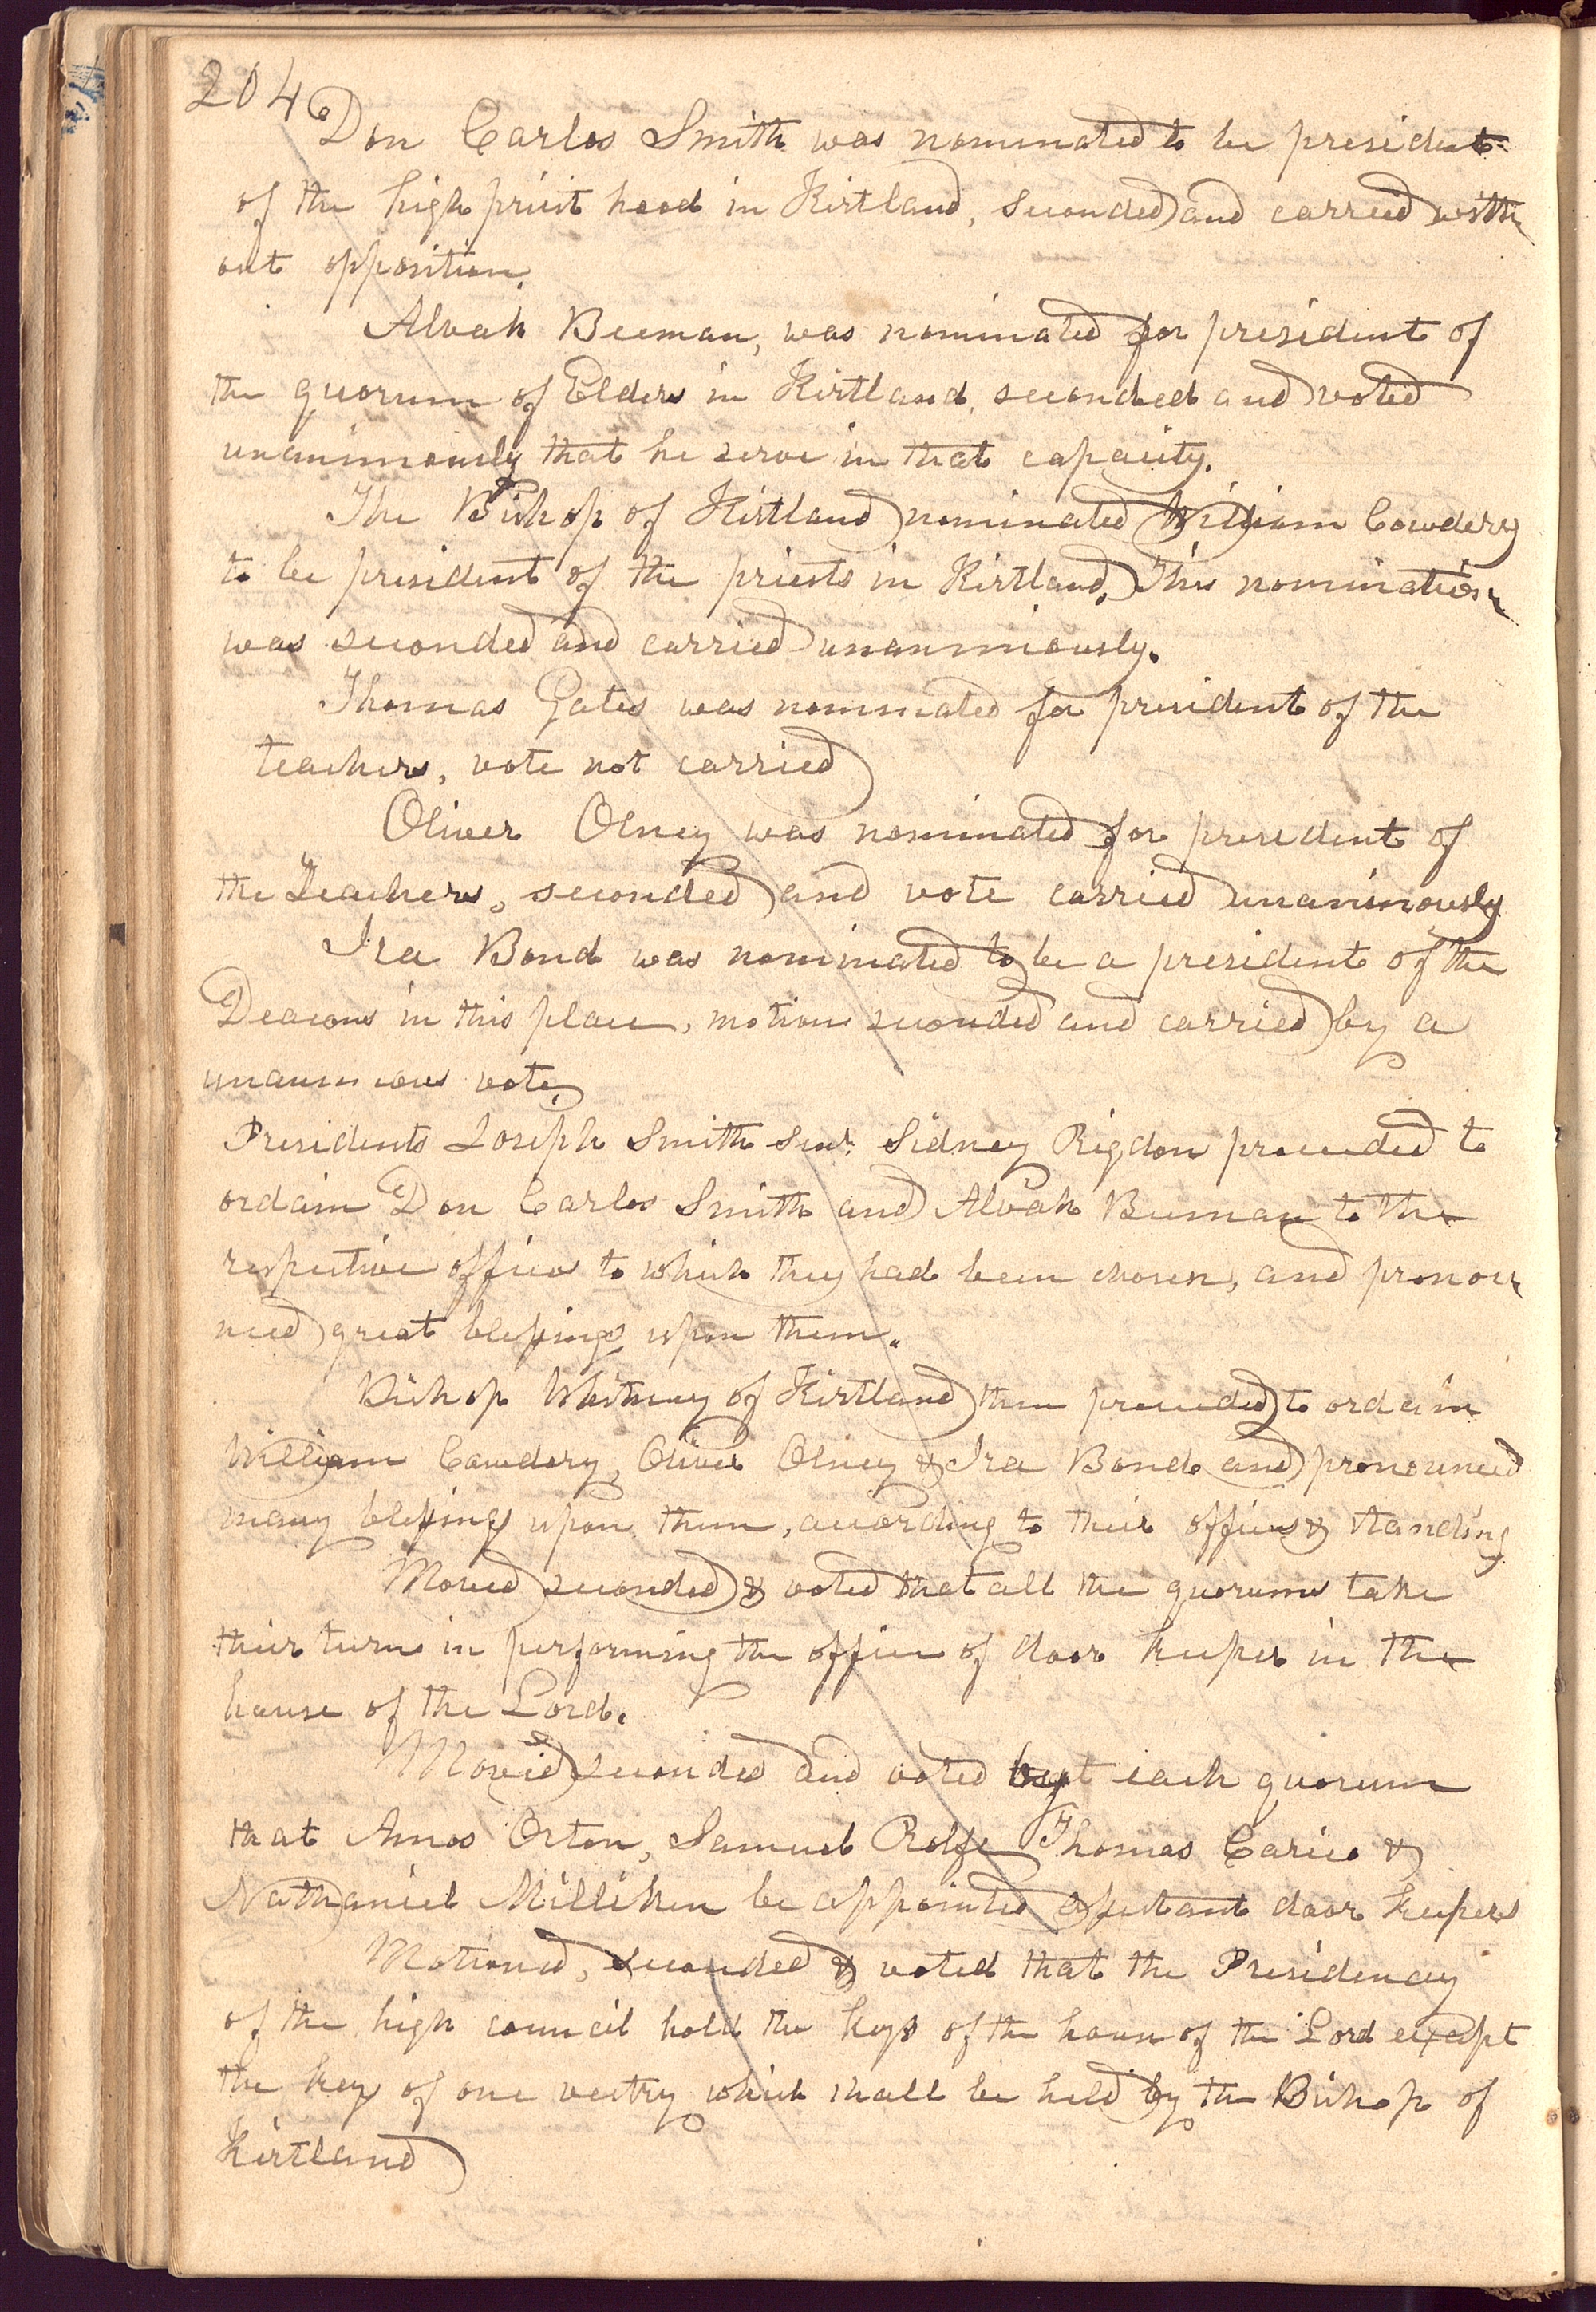 204
Don Carlos Smith was nominated to be president
of the high priest hood in Kirtland, seconded and carried with
out opposition.
Alvah Beeman, was nominated for president of
the quorum of Elders in Kirtland, seconded and voted
unanimously that he serve in that capacity.
The Bishop of Kirtland nominated William Cowdery
to be president of the priests in Kirtland. This nomination
was seconded and carried unanimously.
Thomas Gates was nominated for president of the
teachers, vote not carried
Oliver Olney was nominated for president of
the Teachers, seconded and vote carried unanimously
Ira Bond was nominated to be a president of the
Deacons in this place, motion seconded and carried by a
unanimous vote.
Presidents Joseph Smith Senr. Sidney Rigdon proceeded to
ordain Don Carlos Smith and Alvah Beeman to the
respective offices to which they had been chosen, and pronou
nced great blessings upon them.
Bishop Whitney of Kirtland then proceeded to ordain
William Cowdery, Oliver Olney & Ira Bond and pronounced
many blessings upon them, according to their offices & standing
Moved seconded & voted that all the quorums take
their turns in performing the office of door keeper in the
house of the Lord.
Moved seconded and voted by each quorum
that Amos Orton, Samuel Rolfe Thomas Carico &
Nathaniel Milliken be appointed assistant door keepers
Motioned, seconded & voted that the Presidency
of the high council hold the keys of the house of the Lord except
the key of one vestry which shall be held by the Bishop of
Kirtland